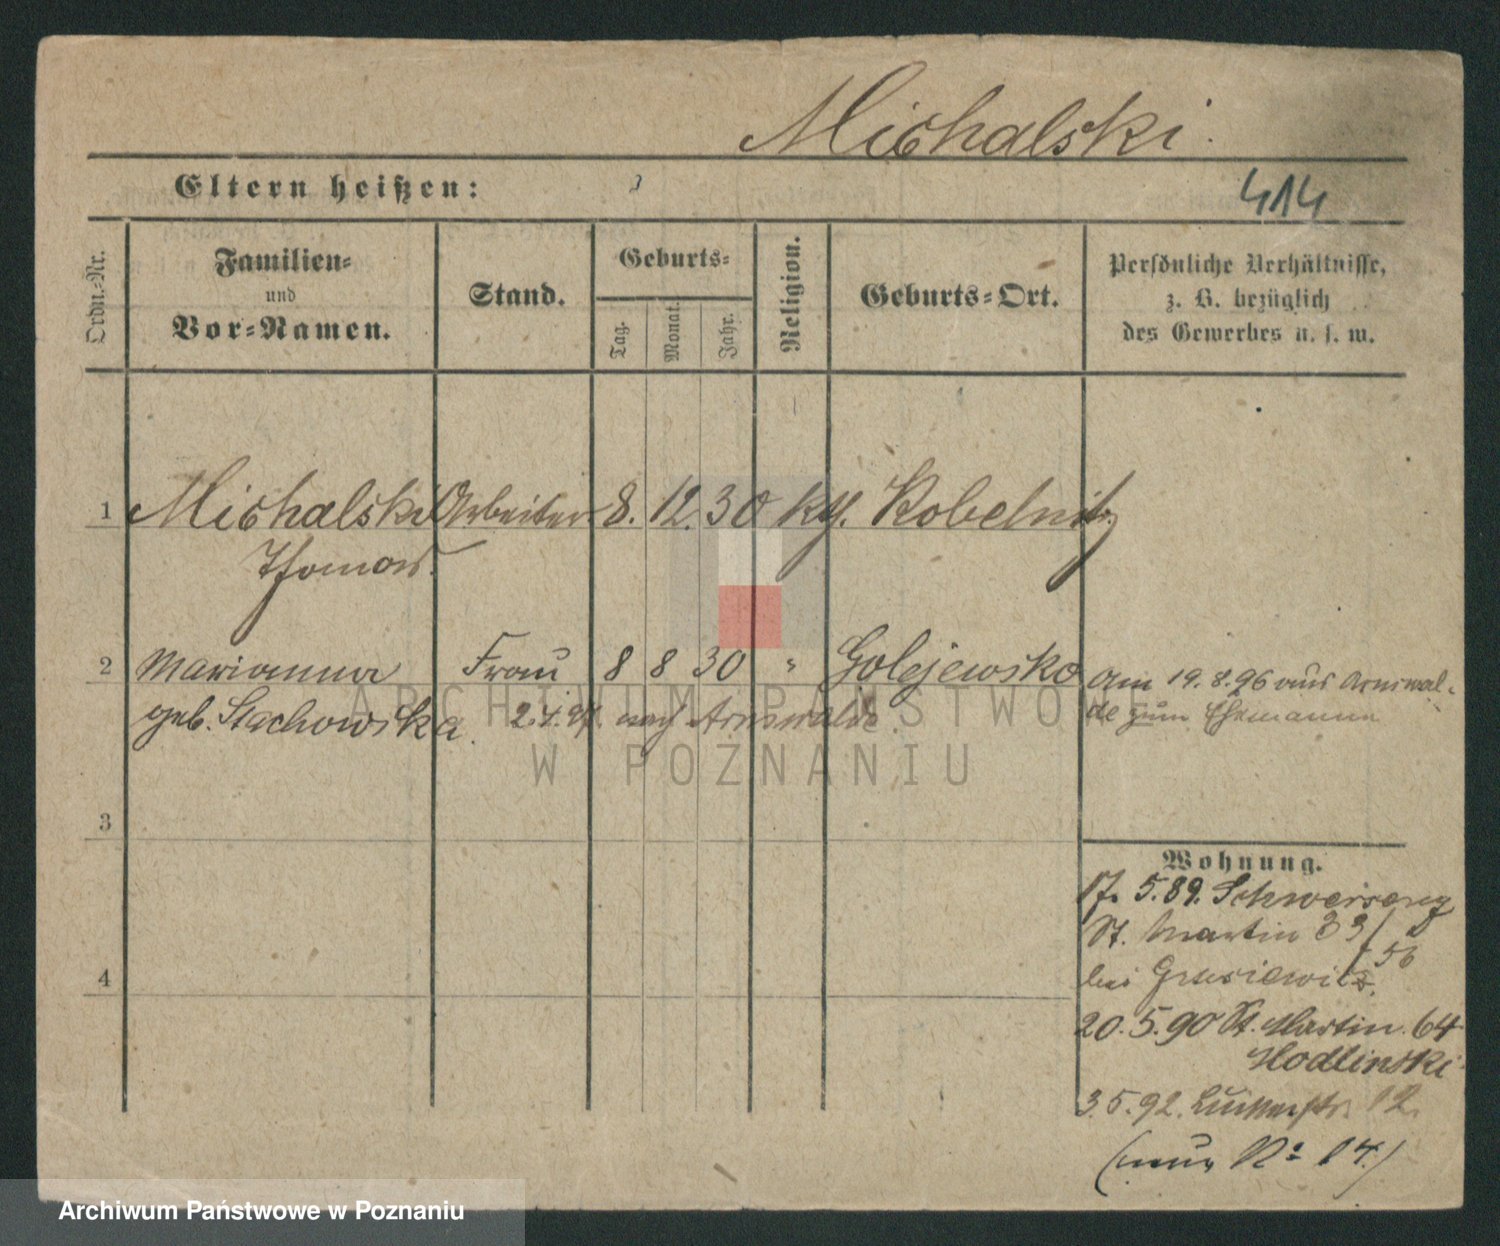 Michalski.
Eltern heißen:
414
Ordn.-Nr.
Familien-
und
Vor-Namen.
Stand.
Geburts-
Tag.
Monat.
Jahr.
Religion.
Geburts-Ort.
Persönliche Verhältnisse,
z. B. bezüglich
des Gewerbes u. s. w.
1 Michalski Arbeiter 8. 12. 30 kth. Kobelnitz
Thomas.
2 Marianna Frau 8 8 30 " Golejewsko
geb. Stachowska. 2.4.97. nach Arnswalde.
Am 19.8.96 aus Arnswal-
de zum Ehemanne
3
4
Wohnung.
17. 5.89. Schwersenz
St. Martin 33/56
bei
20.5.90 St. Martin 64
3.5.92. 12.
(neue No 14.)
ARCHIWUM PAŃSTWOWE
W POZNANIU
Archiwum Państwowe w Poznaniu